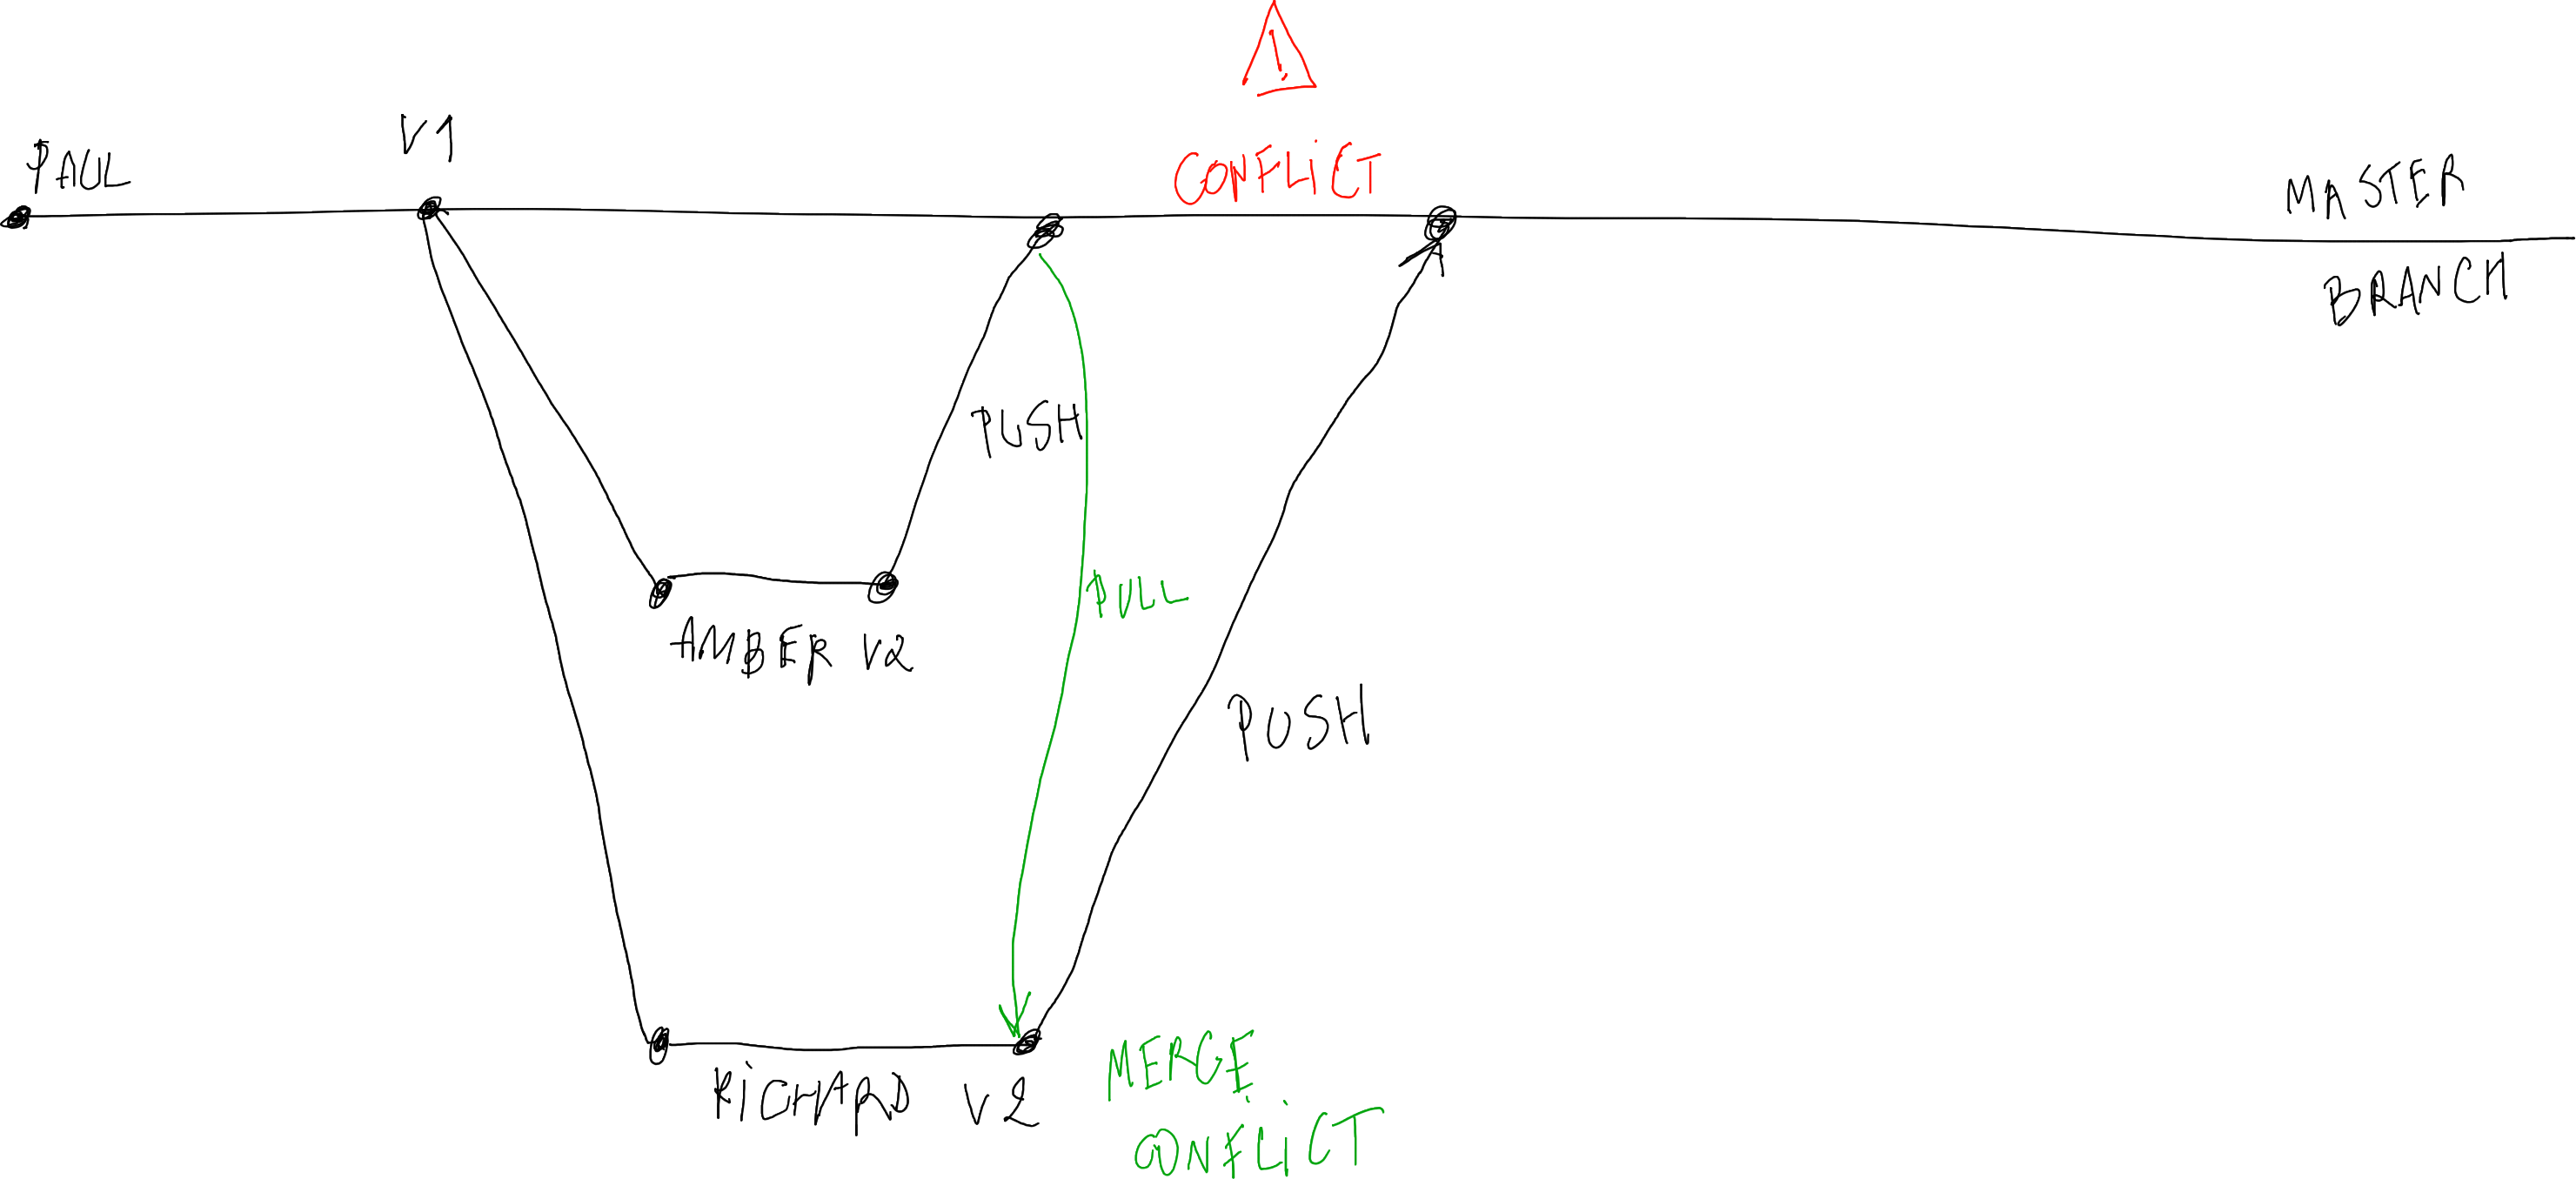 !
PAUL
V1
CONFLiCT
MASTER
BRANCH
PUSH
PULL
AMBER V2
PUSH
RiCHARD V2
MERGE
CONFLiCT